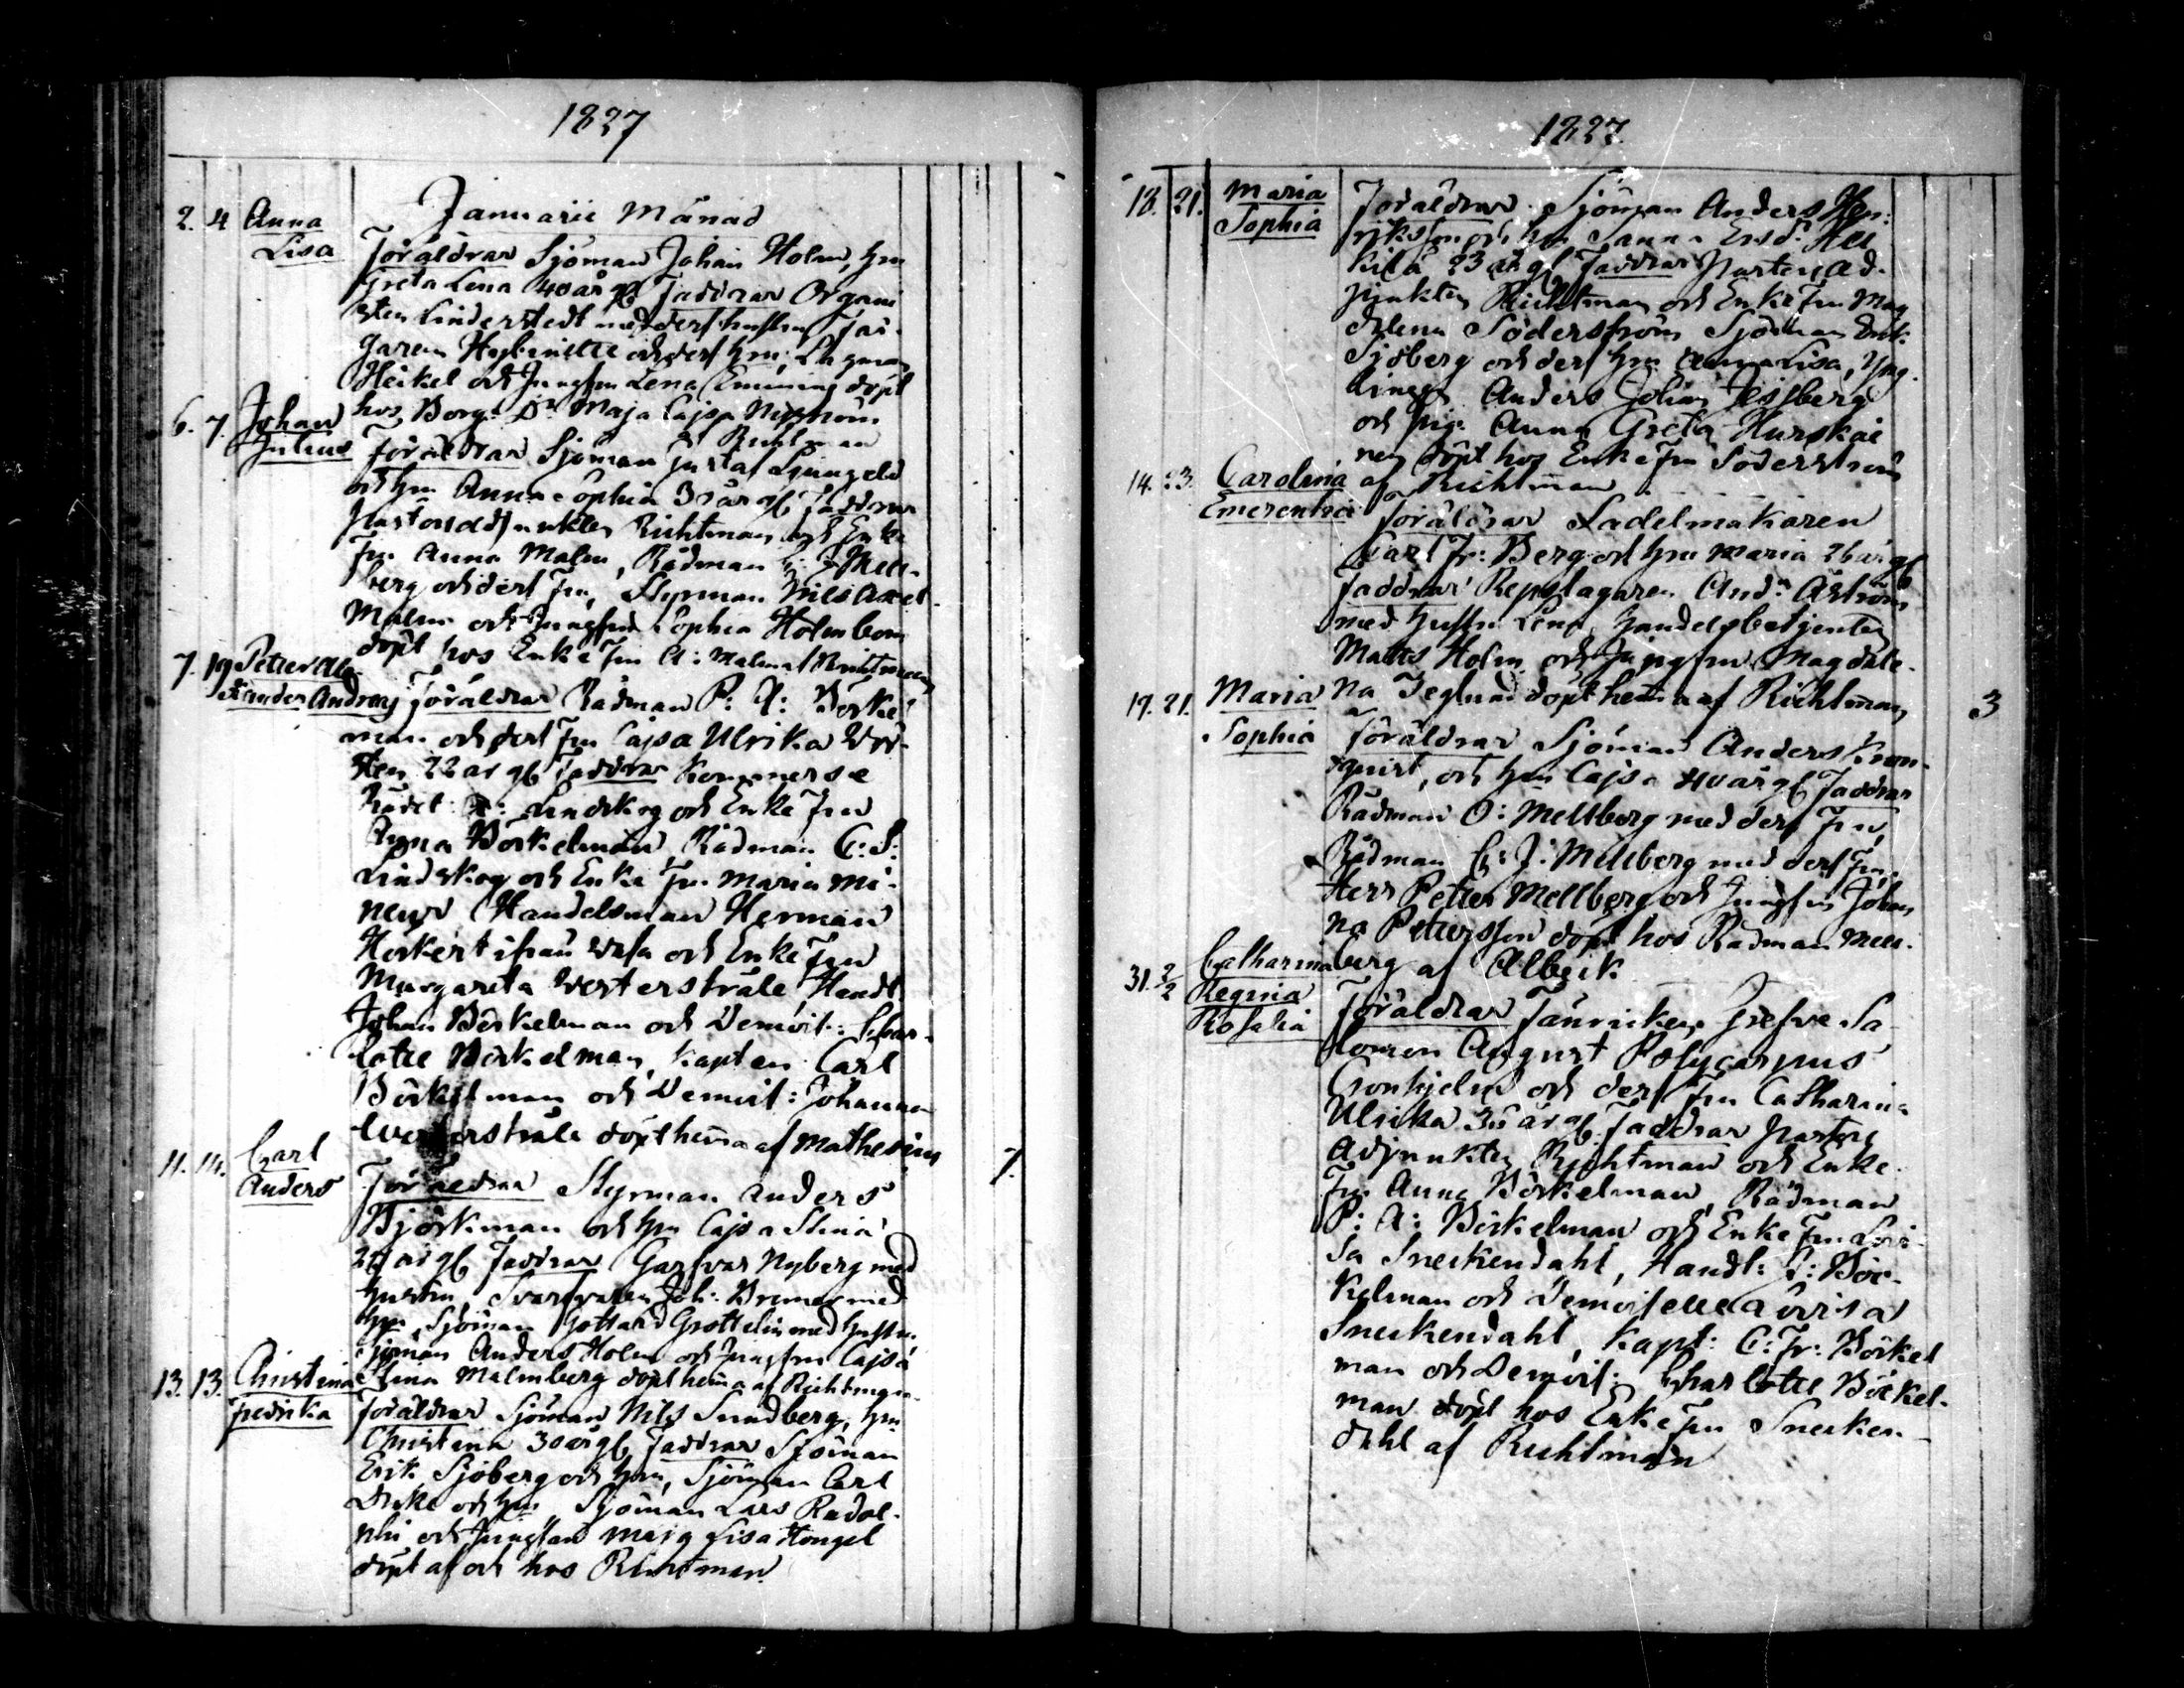 1827
Januarii Månad
2. 4 Anna Lisa
Föräldrar Sjöman Johan Holm, hu
Greta Lena 40 år gl Faddrar Organi
sten Linderstedt med dess hustru Fär-
garen och dess hu
Heikel och Jungfru Lena döpt
hos Borg: Maja Cajsa
Richtman
6. 7. Johan Julius
Föräldrar Sjöman Gustaf Ljungqvist
och hu Anna Sophia 30 år gl Faddrar
Pastorsadjunkten Richtman och Enke
Fru Anna Malm, Rådman Mell-
berg och dess Fru, Styrman Nils Axel
Malm och Jungfru Sophia Holmbom
döpt hos Enke Fru A: Malm af Richtman
7. 19 Petter Ale-
xander Andreas Föräldrar Rådman P: A: Börkel
man och dess Fru Cajsa Ulrika
22 år gl Faddrar Kommerse
Rådet Lindskog och Enke Fru
Anna Börkelman Rådman C: S:
Lindskog och Enke Fru Maria Mi-
neur Handelsman Herman
ifrån Wasa och Enke Fru
Margareta Westerstråle Handl:
Johan Börkelman och Demois: Char-
lotte Börkelman, Kapten Carl
Börkelman och Demois: Johanna
Westerstråle döpt hema af Mathesius
11. 14. Carl Anders 7.
Föräldrar Styrman Anders
Björkman och hu Cajsa Stina
år gl Faddrar Garfvar Nyberg med
hustru, Svarfvaren Joh: med
hu, Sjöman Gottard Grottelin med hustru
Sjöman Anders Holm och Jungfru Cajsa
Stina Malmberg döpt hema af Richtman
13. 13. Christina Fredrika
Föräldrar Sjöman Nils Sundberg, hu
Christina 30 år gl, Faddrar Sjöman
Erik Sjöberg och hu, Sjöman Carl
och hu Sjöman Lars Rudol-
phi och Jungfrun Maja Lisa
döpt af och hos Richtman
1827.
18. 21. Maria Sophia
Föräldrar Sjöman Anders Hen-
riksson och hu Sanna
23 år gl Faddrar Pastors Ad-
junkten Richtman och Enke Fru Mag
dalena Söderström Sjöman Erik
Sjöberg och dess hu Anna Lisa, Yng-
lingen Anders Johan
och pig. Anna Greta
döpt hos Enke Fru Söderström
af Richtman
14. 23. Carolina Emerentia
Föräldrar Sadelmakaren
Carl Fr: Berg och hu Maria 26 år gl
Faddrar Repslagaren And: Åström
med hustru Lena, handelsbetjenten
Matts Holm och Jungfru Magdale-
na döpt hema af Richtman
19. 21. Maria Sophia 3
Föräldrar Sjöman Anders Kron-
qvist, och hu Cajsa 40 år gl Faddrar
Rådman O: Mellberg med dess Fru,
Rådman C: J: Mellberg med dess Fru,
Herr Petter Mellberg och Jungfru Johan
na Pettersson döpt hos Rådman Mell-
berg af Alberk
31. 2/2 Catharina Regina Rosalia
Föräldrar Fänricken Grefve Sa
lomon August Polycarpus
Cronhjelm och dess Fru Catharina
Ulrika 36 år gl Faddrar Pastors
Adjunkten Richtman och Enke
Fru Anna Börkelman, Rådman
P: A: Börkelman och Enke Fru Lovi-
sa Sneckendahl, Handl: Bör-
kelman och Demoiselle Lovisa
Sneckendahl, Kapt: C: Fr: Börkel
man och Demois: Charlotte Börkel-
man döpt hos Enke Fru Snecken-
dahl af Richtman